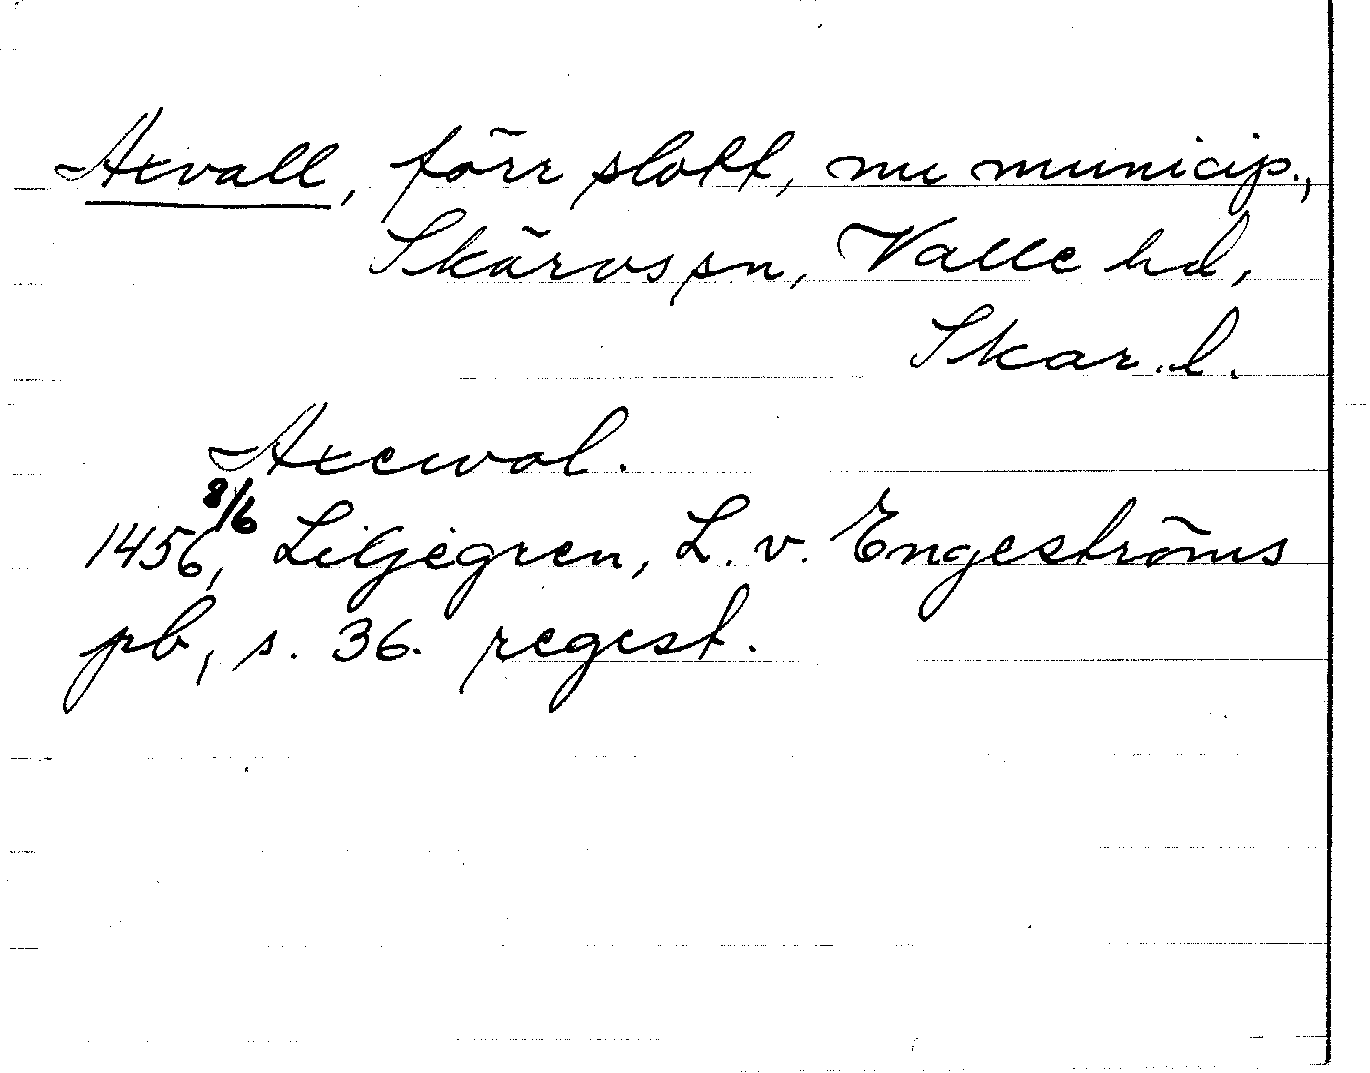 Axvall, förr slott, nu municip.,
Skärvs sn, Valle hd,
Skar. l.
Axewal.
1456 8/6, Liljegren, L. v. Engeströms
pb, s. 36. regest.